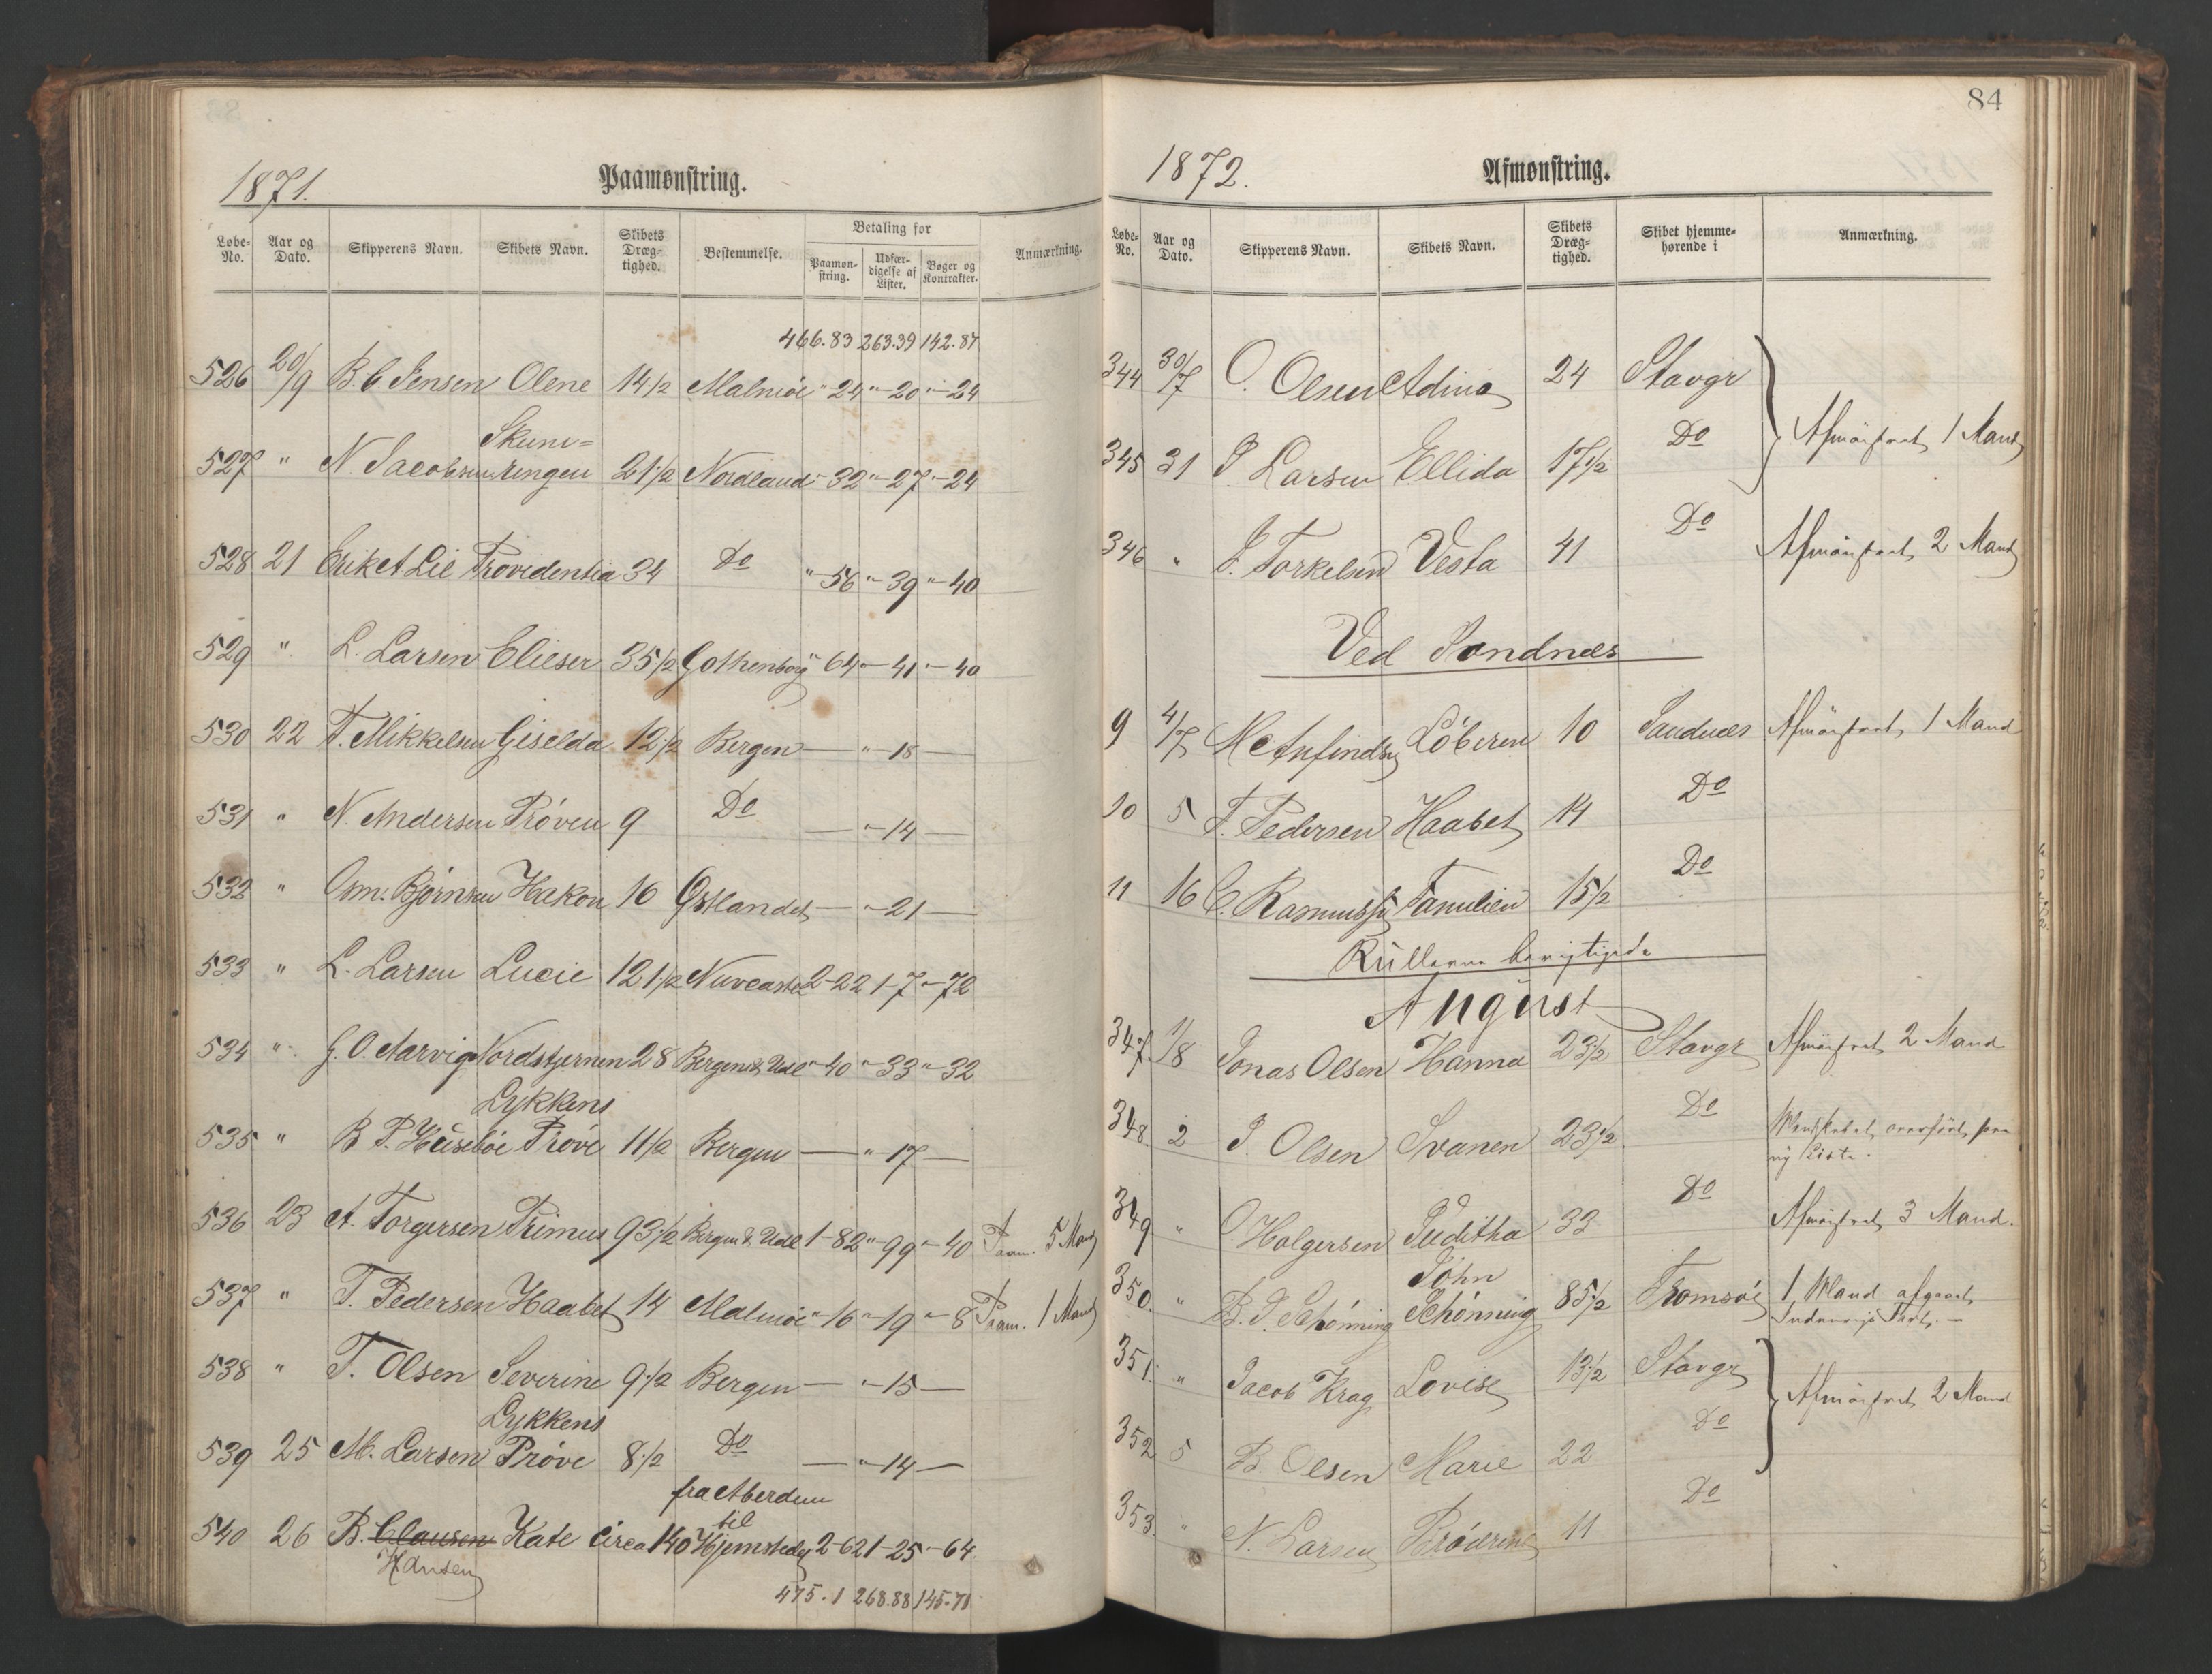 1871.
Paamønstring.
Løbe-No. Aar og Dato. Skipperens Navn. Skibets Navn. Skibets Dræg-tighed. Bestemmelse. Betaling for Paamøn-string. Udfær-digelse af Lister. Bøger og Kontrakter. Anmærkning.
466.83 263.39 142.87
526 20/9 B. C. Jensen Olene 14 1/2 Malmöe " 24 "-20 "-24
Skum=
527 " N. Jacobsen ringen 21 1/2 Nordland " 32 "-27 "-24
528 21 Erik A Lie Providentia 34 Do "-56 "-39 "-40
529 " L. Larsen Elieser 35 1/2 Gothenborg " 64 "-41 "-40
530 22 T. Mikkelsen Giselda 12 1/2 Bergen — "-18 —
531 " N. Andersen Prøven 9 Do — "-14 —
532 " Om. Bjørnsen Hakon 16 Østlandet — "-21 —
533 " L. Larsen Lucie 121 1/2 Nuvcastel 2-22 1-7 "-72
534 " G. O. Aarvig Nordstjernen 28 Bergen & Udl "-40 "-33 "-32
Lykkens
535 " B P. Huseböe Prøve 11 1/2 Bergen — "-17 —
536 23 A. Torgersen Primus 93 1/2 Bergen & Udl 1-82 "-99 "-40 Paam. 5 Mand
537 " T. Pedersen Haabet 14 Malmöe "-16 "-19 "-8 Paam. 1 Mand
538 " T. Olsen Severine 9 1/2 Bergen — "-15 —
Lykkens
539 25 M. Larsen Prøve 8 1/2 Do — "-14 —
fra Aberdeen
til
540 26 B. Clausen Kate Circa 140 Hjemstedet 2-62 1-25 "-64
Hansen
475.1 268.88 145-71
84
1872.
Afmønstring.
Løbe-No. Aar og Dato. Skipperens Navn. Skibets Navn. Skibets Dræg-tighed. Skibet hjemme-hørende i Anmærkning.
344 30/7 O. Olsen Adina 24 Stavgr
Afmönstret 1 Mand
345 31 P Larsen Ellida 17 1/2 Do
346 " J. Torkelsen Vesta 41 Do Afmönstret 2 Mand
Ved Sandnæs
9 4/7 M Anfindsen Löberen 10 Sandnæs Afmönstret 1 Mand
10 5 T. Pedersen Haabet 14 Do
11 16 C. Rasmussen Familien 15 1/2 Do
Rüllerne berigtigede
August
347 1/8 Jonas Olsen Hanna 23 1/2 Stavgr Afmönstret 2 Mand
348 2 J. Olsen Svanen 23 1/2 Do Mandskabet overfört paa
ny Liste.
349 " O Holgersen Juditha 33 Do Afmönstret 3 Mand.
John
350 " B. J. Schönning Schönning 85 1/2 Tromsöe 1 Mand afgaaet
351 " Jacob Krag Lovise 13 1/2 Stavgr
Afmönstret 2 Mand
352 5 B. Olsen Marie 22 Do
353 " N. Larsen Brödrene 11 Do